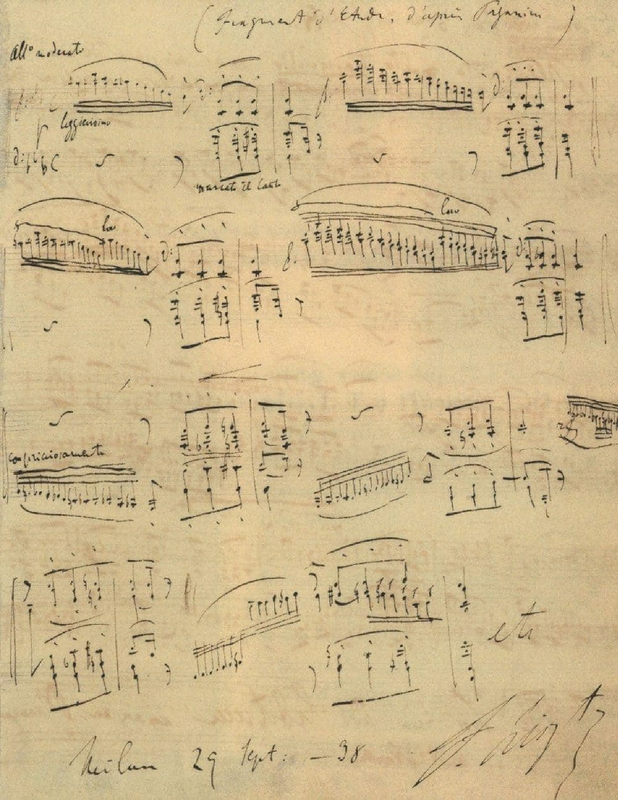 (Fragment d'Etude, d'après Paganini)
All° moderato
leggierissimo
marcato il Canto
loco
loco
capricciosamente
etc
Milan 29 Sept: — 38
F. Liszt